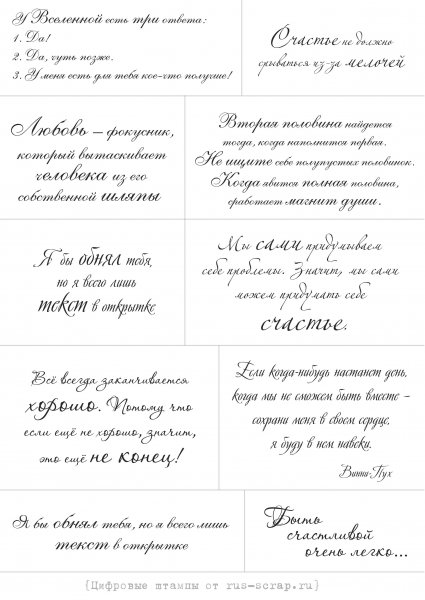 У Вселенной есть три ответа:
1. Да!
2. Да, чуть позже.
3. У меня есть для тебя кое-что получше!
Счастье не должно
срываться из-за мелочей
Любовь – фокусник,
который вытаскивает
человека из его
собственной шляпы
Вторая половина найдется
тогда, когда наполнится первая.
Не ищите себе полупустых половинок.
Когда явится полная половина,
сработает магнит души.
Я бы обнял тебя,
но я всего лишь
текст в открытке
Мы сами придумываем
себе проблемы. Значит, мы сами
можем придумать себе
счастье.
Всё всегда заканчивается
хорошо. Потому что
если ещё не хорошо, значит,
это ещё не конец!
Если когда-нибудь настанет день,
когда мы не сможем быть вместе –
сохрани меня в своем сердце,
я буду в нем навеки.
Винни-Пух
Я бы обнял тебя, но я всего лишь
текст в открытке
Быть
счастливой
очень легко...
{Цифровые штампы от rus-scrap.ru}